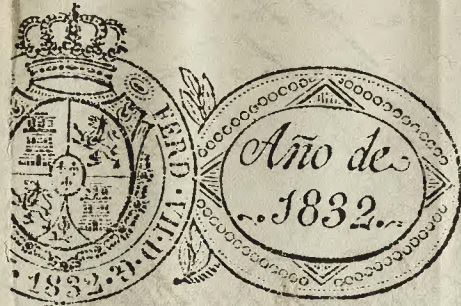 FERD · VII · D · G ·
· 1832 ·
Año de
1832.